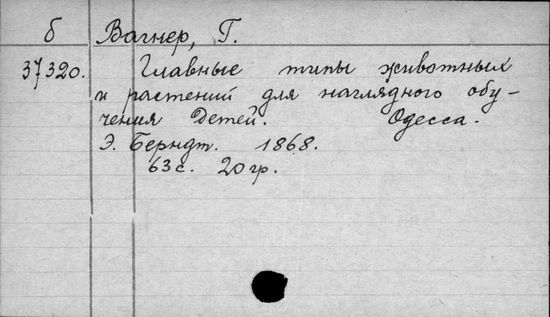 б Вагнер, Г.
37320. Главные типы животных
и растений для наглядного обу-
чения детей. Одесса.
Э. Берндт. 1868.
63 с. 20 гр.